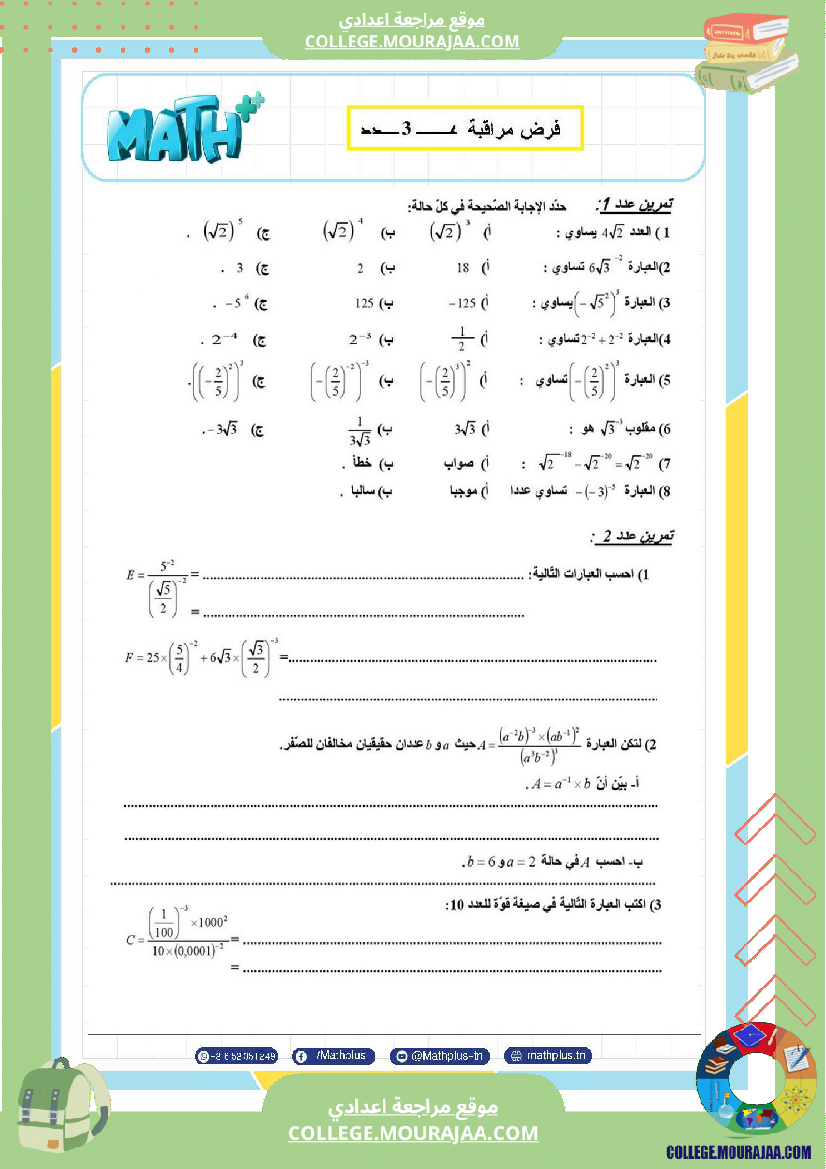 موقع مراجعة اعدادي
COLLEGE.MOURAJAA.COM
MATH
فرض مراقبة عـــــ 3 ــــدد
تمرين عدد 1: حدّد الإجابة الصّحيحة في كلّ حالة:
1) العدد 4√2 يساوي : أ) (√2)³ ب) (√2)⁴ ج) (√2)⁵ .
2)العبارة 6√3⁻² تساوي : أ) 18 ب) 2 ج) 3 .
3) العبارة (−√5²)³ يساوي : أ) −125 ب) 125 ج) −5⁶ .
4)العبارة 2⁻² + 2⁻² تساوي : أ) 1/2 ب) 2⁻³ ج) 2⁻⁴ .
5) العبارة (−(2/5)²)³ تساوي : أ) (−(2/5)³)² ب) (−(2/5)⁻²)⁻³ ج) ((−2/5)²)³.
6) مقلوب √3⁻³ هو : أ) 3√3 ب) 1/(3√3) ج) −3√3.
7) √2⁻¹⁸ − √2⁻²⁰ = √2⁻²⁰ : أ) صواب ب) خطأ .
8) العبارة −(−3)⁻⁵ تساوي عددا أ) موجبا ب) سالبا .
تمرين عدد 2 :
1) احسب العبارات التّالية: E = 5⁻² / (√5/2)⁻² = ........
= ........
F = 25×(5/4)⁻² + 6√3×(√3/2)⁻³ =........
2) لتكن العبارة A = (a⁻²b)⁻³×(ab⁻¹)² / (a³b⁻²)³ حيث a و b عددان حقيقيان مخالفان للصّفر.
أ- بيّن أنّ A = a⁻¹ × b .
ب- احسب A في حالة a = 2 و b = 6.
3) اكتب العبارة التّالية في صيغة قوّة للعدد 10:
C = (1/100)⁻³ ×1000² / 10×(0,0001)⁻² = ........
= ........
/Mathplus
@Mathplus-tn
mathplus.tn
موقع مراجعة اعدادي
COLLEGE.MOURAJAA.COM
COLLEGE.MOURAJAA.COM